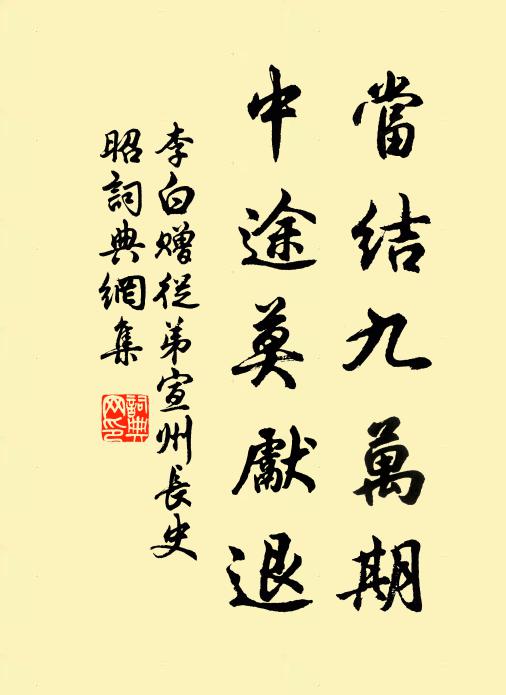 當結九萬期
中途莫獻退
李白赠從弟宣州長史
昭詞典網集
詞典
网印